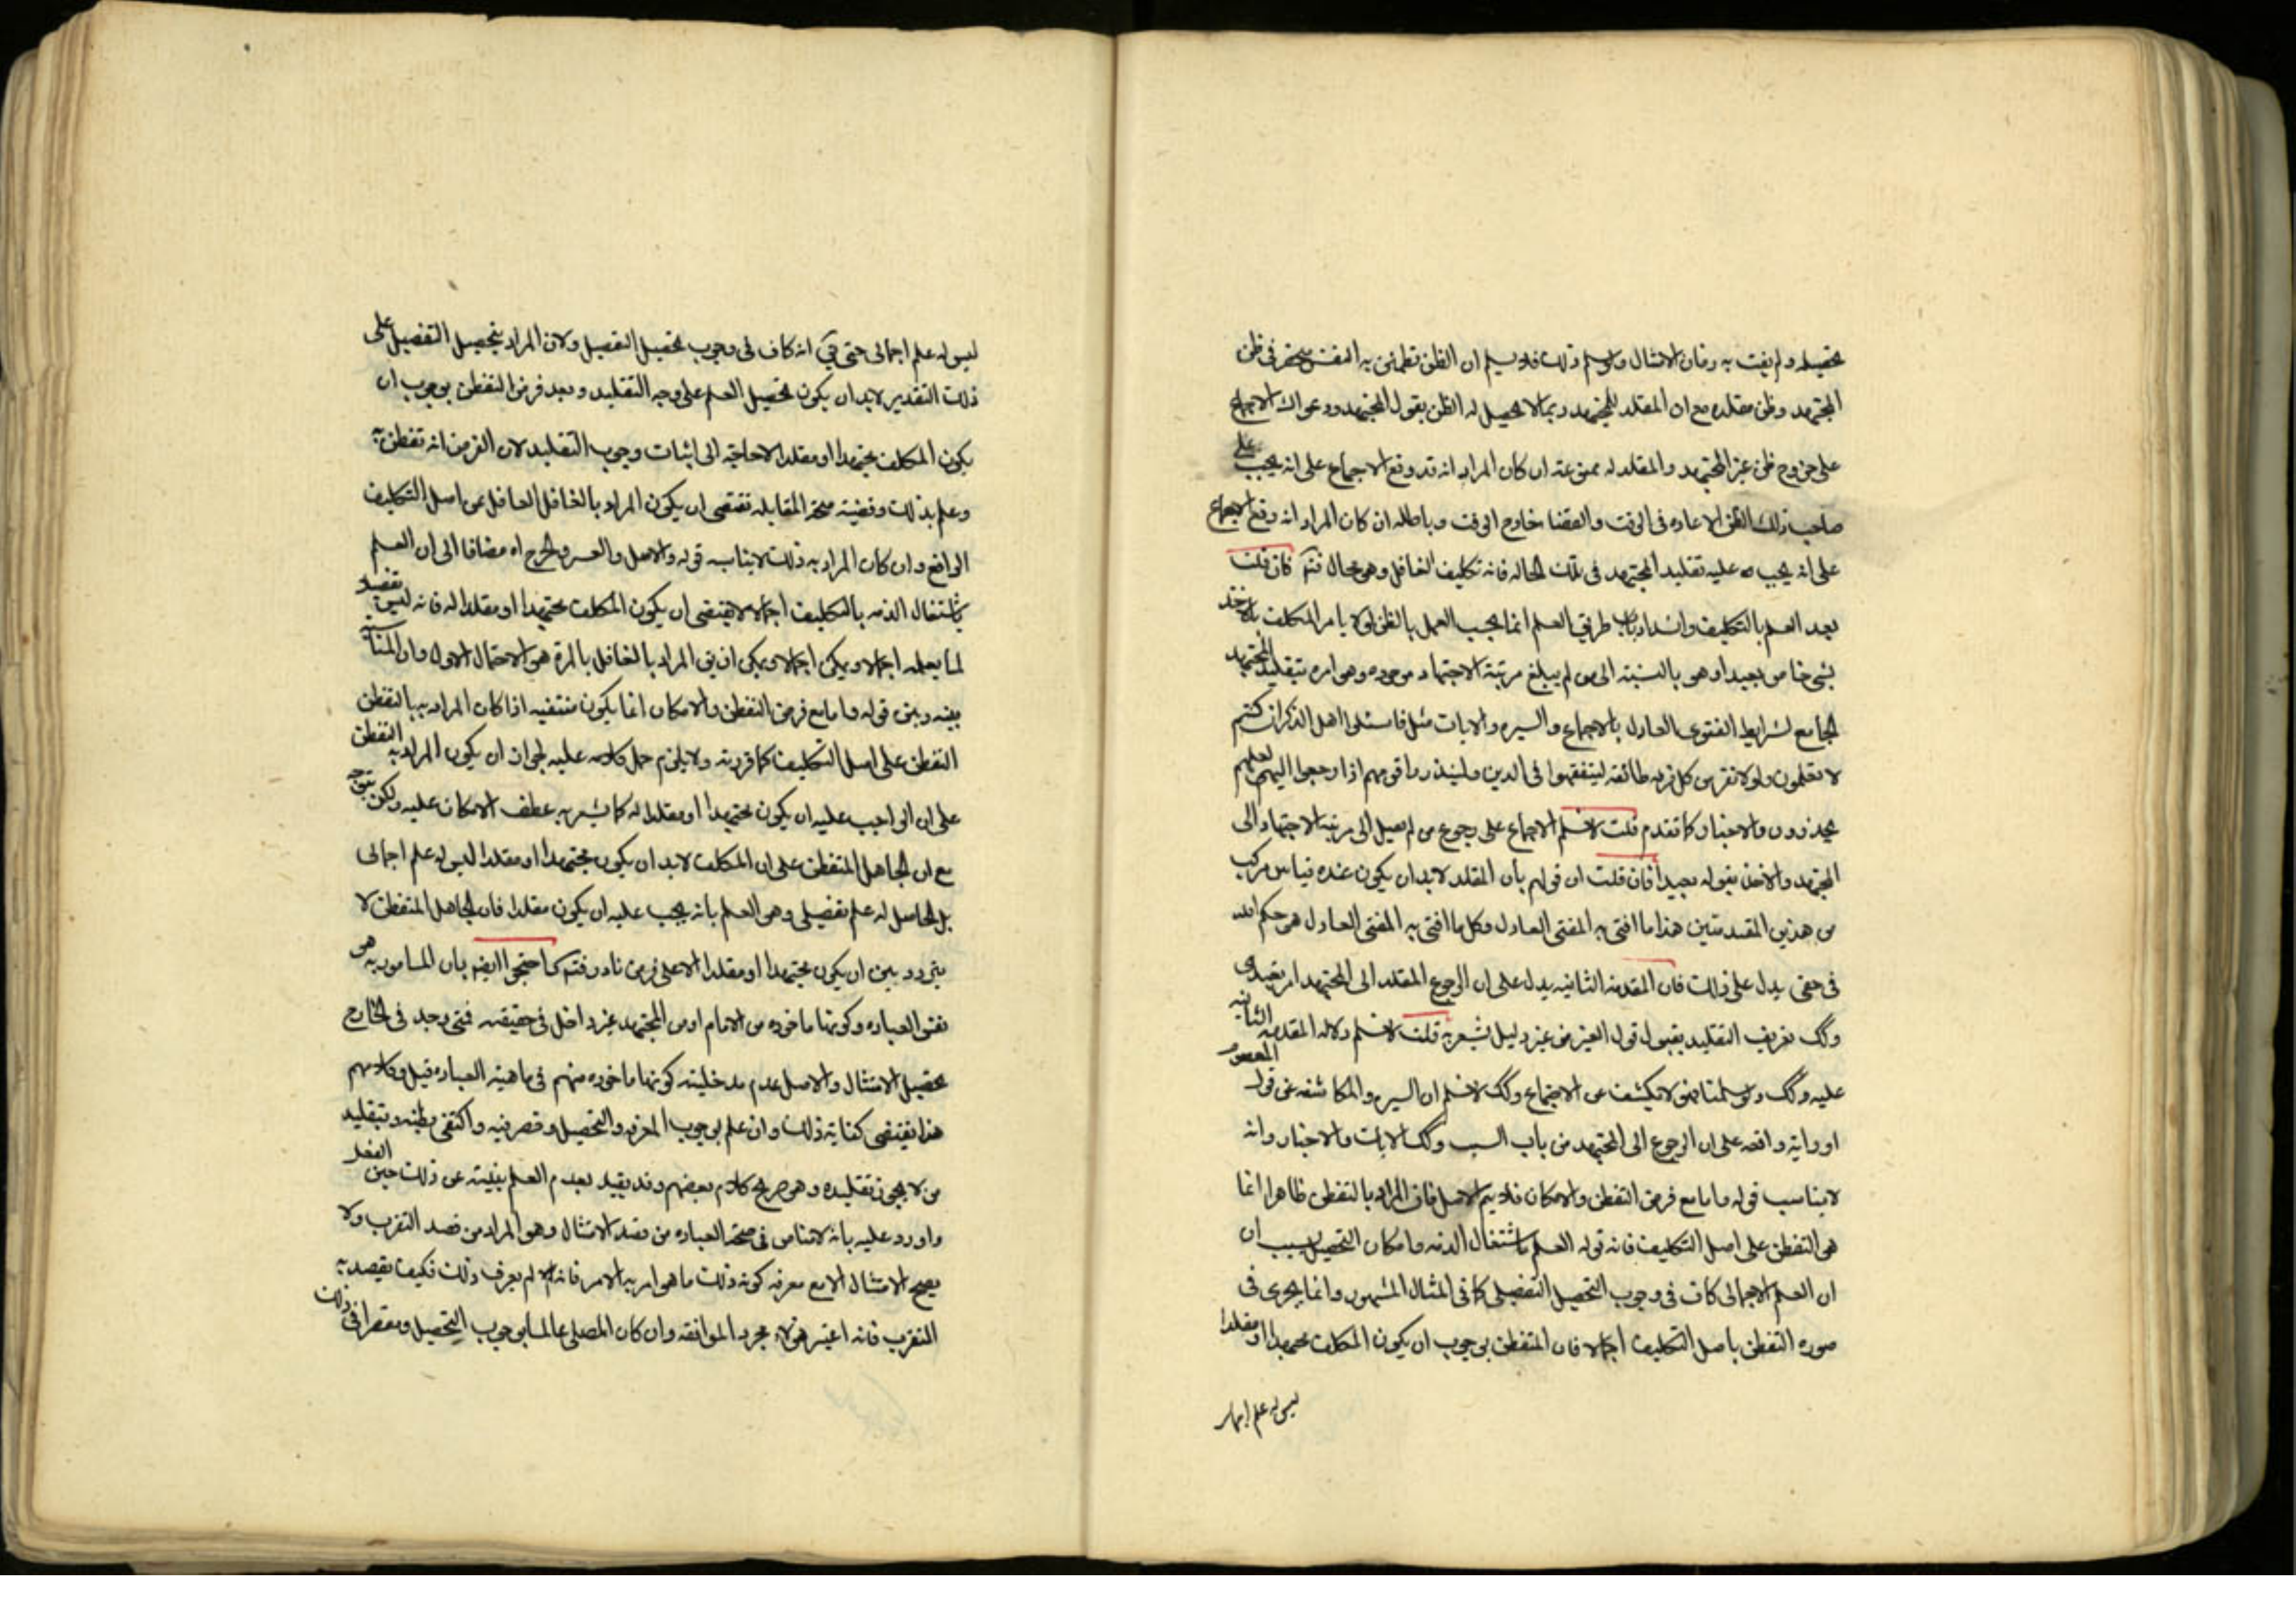 تحصيله ولم يفت به زمان الامتثال ولو سلم ذلك فلا يسلم ان الظن تطمئن به النفس منحصر في ظن
المجتهد وظن مقلده مع ان المقلد للمجتهد ربما لا يحصل له الظن بقول المجتهد ودعواك الاجماع
على خروج ظن غير المجتهد والمقلد له ممنوعة ان كان المراد انه قد وقع الاجماع على انه يجب على
صاحب ذلك الظن الاعاده في الوقت والقضا خارج الوقت وباطله ان كان المراد انه وقع الاجماع
على انه يجب عليه تقليد المجتهد في تلك الحاله فانه تكليف الغافل وهو محال فتم فان قلت
بعد العلم بالتكليف وانسداد باب طريق العلم انما يجب العمل بالظن لولا يامر المكلف بالاخذ
بشى خاص بعيدا وهو بالنسبة الى من لم يبلغ مرتبة الاجتهاد موجود وهو امره بتقليد المجتهد
الجامع لشرايط الفتوى العادل بالاجماع والسيره والايات مثل فاسئلوا اهل الذكر ان كنتم
لا تعلمون ولولا نفر من كل فرقه طائفه ليتفقهوا في الدين ولينذروا قومهم اذا رجعوا اليهم لعلهم
يحذرون والاخبار كما تقدم قلت لا نسلم الاجماع على رجوع من لم يصل الى مرتبة الاجتهاد الى
المجتهد والاخذ بقوله تعبيدا فان قلت ان قولهم بأن المقلد لابد ان يكون عنده قياس مركب
من هذين المقدمتين هذا ما افتى به المفتى العادل وكل ما افتى به المفتى العادل هو حكم الله
في حقى يدل على ذلك فان المقدمة الثانيه يدل على ان الرجوع المقلد الى المجتهد امر تعبدى
وكك تعريف التقليد بقبول قول الغير من غير دليل يشعر به قلت لا نسلم دلاله المقدمه الثانيه
عليه وكك ولو سلمنا فهو لا يكشف عن الاجماع وكك لا نسلم ان السيره والمكاشفه عن قول المعصوم
او رواية واقعه على ان الرجوع الى المجتهد من باب السبب وكك الايات والاخبار وانه
لا يناسب قوله واما مع فرض التفطن والامكان فلا يتم الاصل فان المراد بالتفطن ظاهرا انما
هو التفطن على اصل التكليف فانه قوله العلم باشتغال الذمه وامكان التحصيل بسبب ان
ان العلم الاجمالى كاف في وجوب التحصيل التفضيلى كما في المثال المشهور وانما يجرى في
صوره التفطن باصل التكليف اجمالا فان المتفطن بوجوب ان يكون المكلف مجتهدا او مقلدا
ليس له علم اجمالى
ليس له علم اجمالى حتى يق انه كاف في وجوب تحصيل التفصيل ولان المراد بتحصيل التفصيل على
ذلك التقدير لابد ان يكون تحصيل العلم على وجه التقليد وبعد فرض التفطن بوجوب ان
يكون المكلف مجتهدا او مقلدا لا حاجة الى اثبات وجوب التقليد لان الفرض انه تفطن به
وعلم بذلك وقضيته صحة المقابله تقتضى ان يكون المراد بالغافل الغافل عن اصل التكليف
الواقع وان كان المراد به ذلك لا يناسب قوله والاصل والعسر والحرج اه مضافا الى ان العلم
باشتغال الذمه بالتكليف اجمالا لا يقتضى ان يكون المكلف مجتهدا او مقلدا له فانه ليس تفصيلا
لما يعلمه اجمالا ويمكن ان يق المراد بالغافل بالمرة هو الاحتمال الاول وان المنافاة
بينه وبين قوله واما مع فرض التفطن والامكان انما يكون منتفيه اذا كان المراد به بالتفطن
التفطن على اصل التكليف كما قررته ولا يلزم حمل كلامه عليه لجواز ان يكون المراد به التفطن
على ان الواجب عليه ان يكون مجتهدا او مقلدا له كما يشعر به عطف الامكان عليه ولكن يتوجه
مع ان الجاهل المتفطن على ان المكلف لابد ان يكون مجتهدا او مقلدا ليس له علم اجمالى
بل الحاصل له علم تفصيلى وهو العلم بانه يجب عليه ان يكون مقلدا فان الجاهل المتفطن لا
يتردد بين ان يكون مجتهدا او مقلدا الا على فرض نادر فتم كما احتجوا ايضم بان المامور به هو
نفس العباده وكونها ماخوذه من الامام او من المجتهد غير داخل في حقيقته فمتى وجد في الخارج
تحصيل الامتثال والاصل عدم مدخلية كونها ماخوذه منهم في ماهية العباده قيل وكلامهم
هذا يقتضى كفاية ذلك وان علم بوجوب المعرفه والتحصيل وقصر فيه واكتفى بظنه وبتقليد
من لا يجوز تقليده وهو صريح كلام بعضهم وقد يقيد بعدم العلم بنيته عن ذلك حين الفعل
واورد عليه بانه لا مناص في صحة العباده من قصد الامتثال وهو المراد من قصد التقرب ولا
يصح الامتثال الا مع معرفه كونه ذلك ما هو امر به الامر فانه لو لم يعرف ذلك فكيف يقصد به
التقرب فانه اعتبر هؤلاء مجرد الموافقه وان كان المصلى عالما بوجوب التحصيل ومقصرا في ذلك